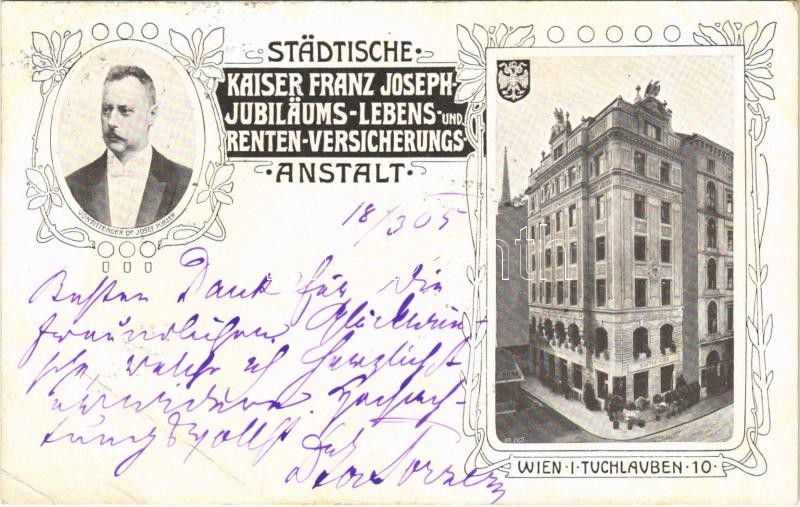 STÄDTISCHE
KAISER FRANZ JOSEPH-
JUBILÄUMS-LEBENS-UND
RENTEN-VERSICHERUNGS
ANSTALT
VORSITZENDER DR JOSEF PORZER
18/3 05
Besten Dank für die
freundlichen Glückwün-
sche, welche ich herzlichst
erwidere. Hochach-
tungsvollst
Porzer
WIEN · I · TUCHLAUBEN · 10 ·